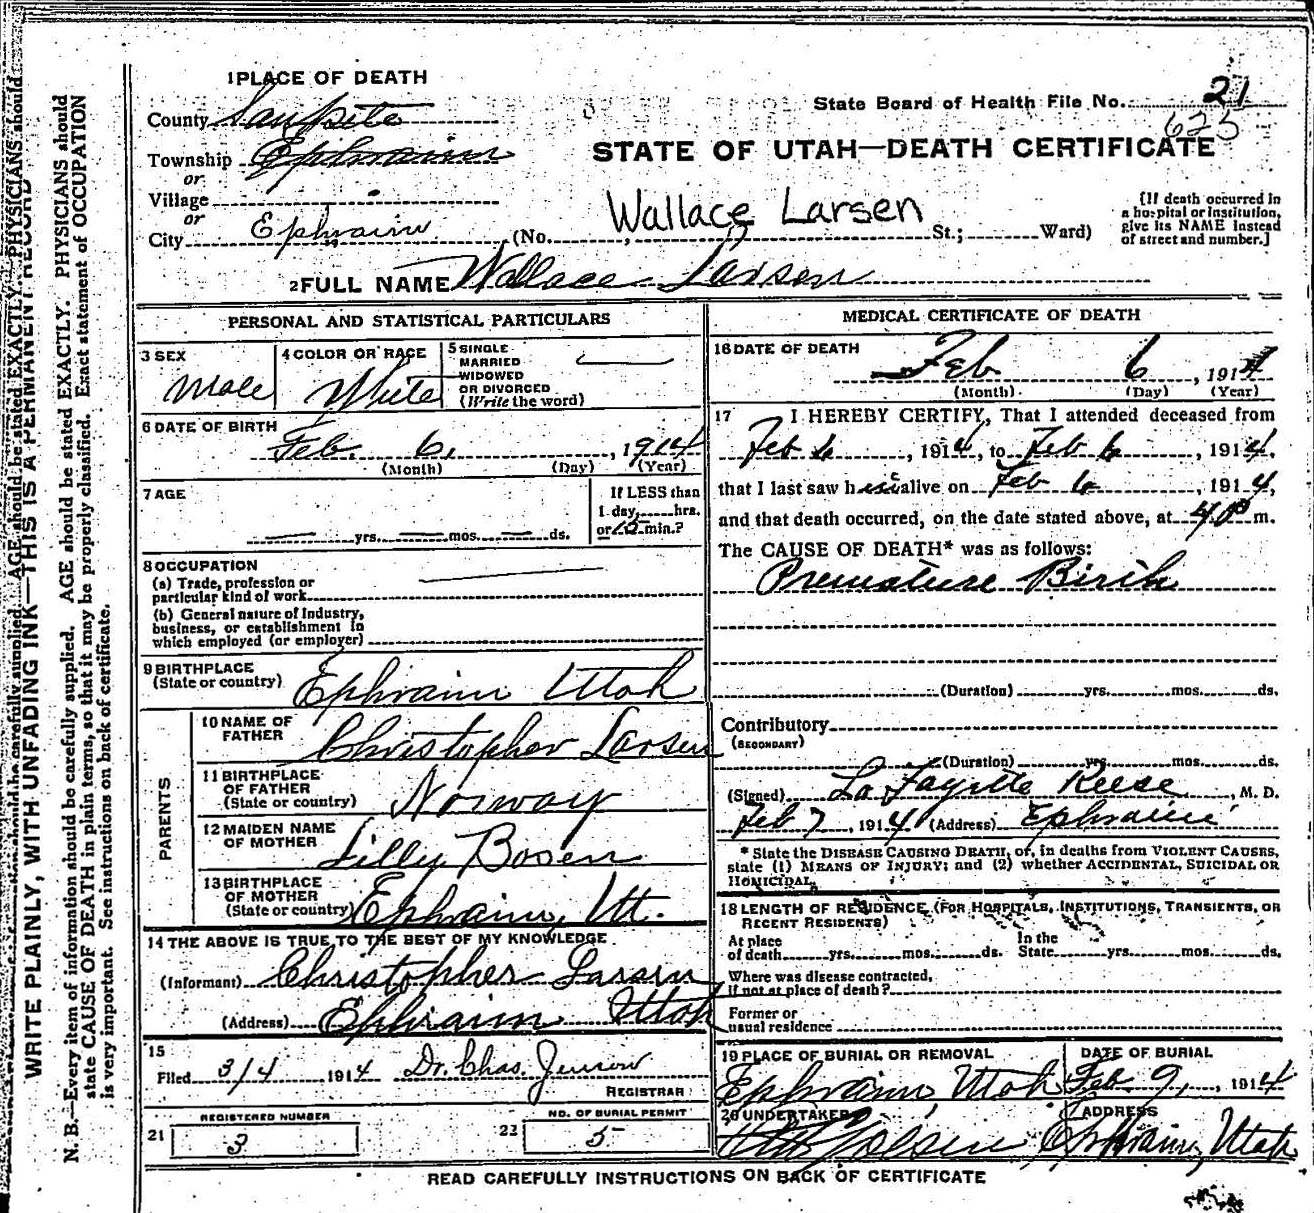 1 PLACE OF DEATH
County Sanpete
State Board of Health File No. 21
625
Township Ephraim
or
STATE OF UTAH—DEATH CERTIFICATE
Village
or
City Ephraim (No. St.; Ward)
Wallace Larsen
[If death occurred in
a hospital or institution,
give its NAME instead
of street and number.]
2 FULL NAME Wallace Larsen
PERSONAL AND STATISTICAL PARTICULARS
3 SEX
Male
4 COLOR OR RACE
White
5 SINGLE
MARRIED
WIDOWED
OR DIVORCED
(Write the word)
6 DATE OF BIRTH
Feb. 6, 1914
(Month) (Day) (Year)
7 AGE
yrs. mos. ds.
If LESS than
1 day, hrs.
or 15 min.?
8 OCCUPATION
(a) Trade, profession or
particular kind of work
(b) General nature of Industry,
business, or establishment in
which employed (or employer)
9 BIRTHPLACE
(State or country) Ephraim Utah
PARENTS
10 NAME OF
FATHER Christopher Larsen
11 BIRTHPLACE
OF FATHER
(State or country) Norway
12 MAIDEN NAME
OF MOTHER Lilly Bosen
13 BIRTHPLACE
OF MOTHER
(State or country) Ephraim, Ut.
14 THE ABOVE IS TRUE TO THE BEST OF MY KNOWLEDGE
(Informant) Christopher Larsen
(Address) Ephraim Utah
15
Filed 3/4 1914 Dr. Chas. Jenson
REGISTRAR
REGISTERED NUMBER
21 3
NO. OF BURIAL PERMIT
22 5
MEDICAL CERTIFICATE OF DEATH
16 DATE OF DEATH
Feb 6, 1914
(Month) (Day) (Year)
17 I HEREBY CERTIFY, That I attended deceased from
Feb 6, 1914, to Feb 6, 1914.
that I last saw him alive on Feb 6, 1914,
and that death occurred, on the date stated above, at 40 P m.
The CAUSE OF DEATH* was as follows:
Premature Birth
(Duration) yrs. mos. ds.
Contributory
(SECONDARY)
(Duration) yrs. mos. ds.
(Signed) La Fayette Reese, M. D.
Feb 7, 1914 (Address) Ephraim
* State the DISEASE CAUSING DEATH, or, in deaths from VIOLENT CAUSES,
state (1) MEANS OF INJURY; and (2) whether ACCIDENTAL, SUICIDAL OR
HOMICIDAL.
18 LENGTH OF RESIDENCE (FOR HOSPITALS, INSTITUTIONS, TRANSIENTS, OR
RECENT RESIDENTS)
At place
of death yrs. mos. ds.
In the
State yrs. mos. ds.
Where was disease contracted,
if not at place of death?
Former or
usual residence
19 PLACE OF BURIAL OR REMOVAL
Ephraim, Utah
DATE OF BURIAL
Feb 9, 1914
20 UNDERTAKER
Olsen
ADDRESS
Ephraim, Utah
READ CAREFULLY INSTRUCTIONS ON BACK OF CERTIFICATE
WRITE PLAINLY, WITH UNFADING INK—THIS IS A PERMANENT RECORD
N. B.—Every item of information should be carefully supplied. AGE should be stated EXACTLY. PHYSICIANS should
state CAUSE OF DEATH in plain terms, so that it may be properly classified. Exact statement of OCCUPATION
is very important. See instructions on back of certificate.